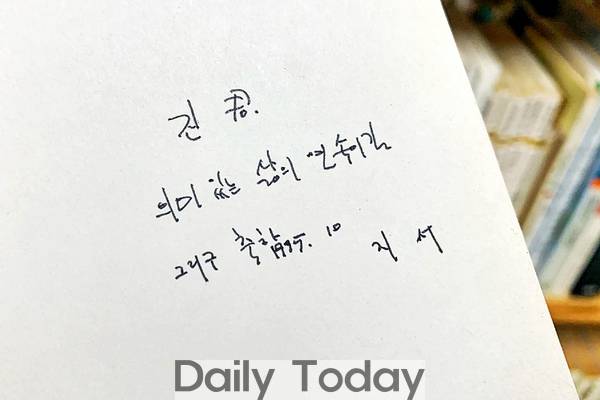 건 쿵.
의미 있는 삶의 연속이길
그리구 축하 1995. 10 지서
Daily Today